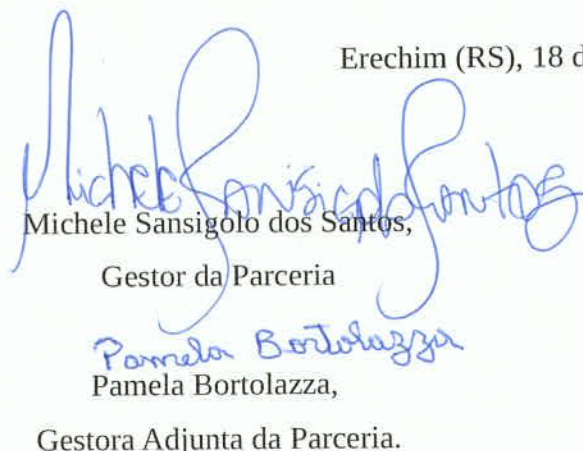 Erechim (RS), 18 d
Michele Sansigolo dos Santos
Michele Sansigolo dos Santos,
Gestor da Parceria
Pamela Bortolazza
Pamela Bortolazza,
Gestora Adjunta da Parceria.